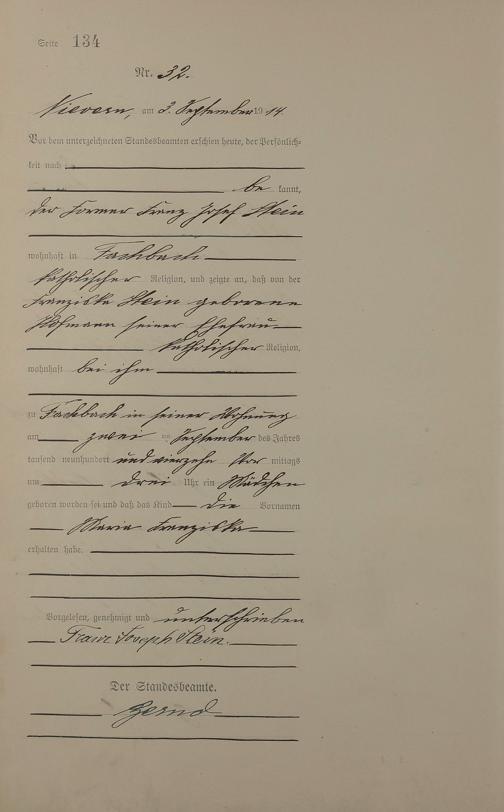 Seite 134
Nr. 32.
Nievern, am 3. September 1914.
Vor dem unterzeichneten Standesbeamten erschien heute, der Persönlich-
keit nach
be kannt,
der Former Franz Josef Stein
wohnhaft in Fachbach
katholischer Religion, und zeigte an, daß von der
Franziska Stein geborene
Hofmann seiner Ehefrau
katholischer Religion,
wohnhaft bei ihm
zu Fachbach in seiner Wohnung
am zwei ten September des Jahres
tausend neunhundert und vierzehn Vor mittags
um drei Uhr ein Mädchen
geboren worden sei und daß das Kind die Vornamen
Maria Franziska
erhalten habe.
Vorgelesen, genehmigt und unterschrieben
Franz Joseph Stein.
Der Standesbeamte.